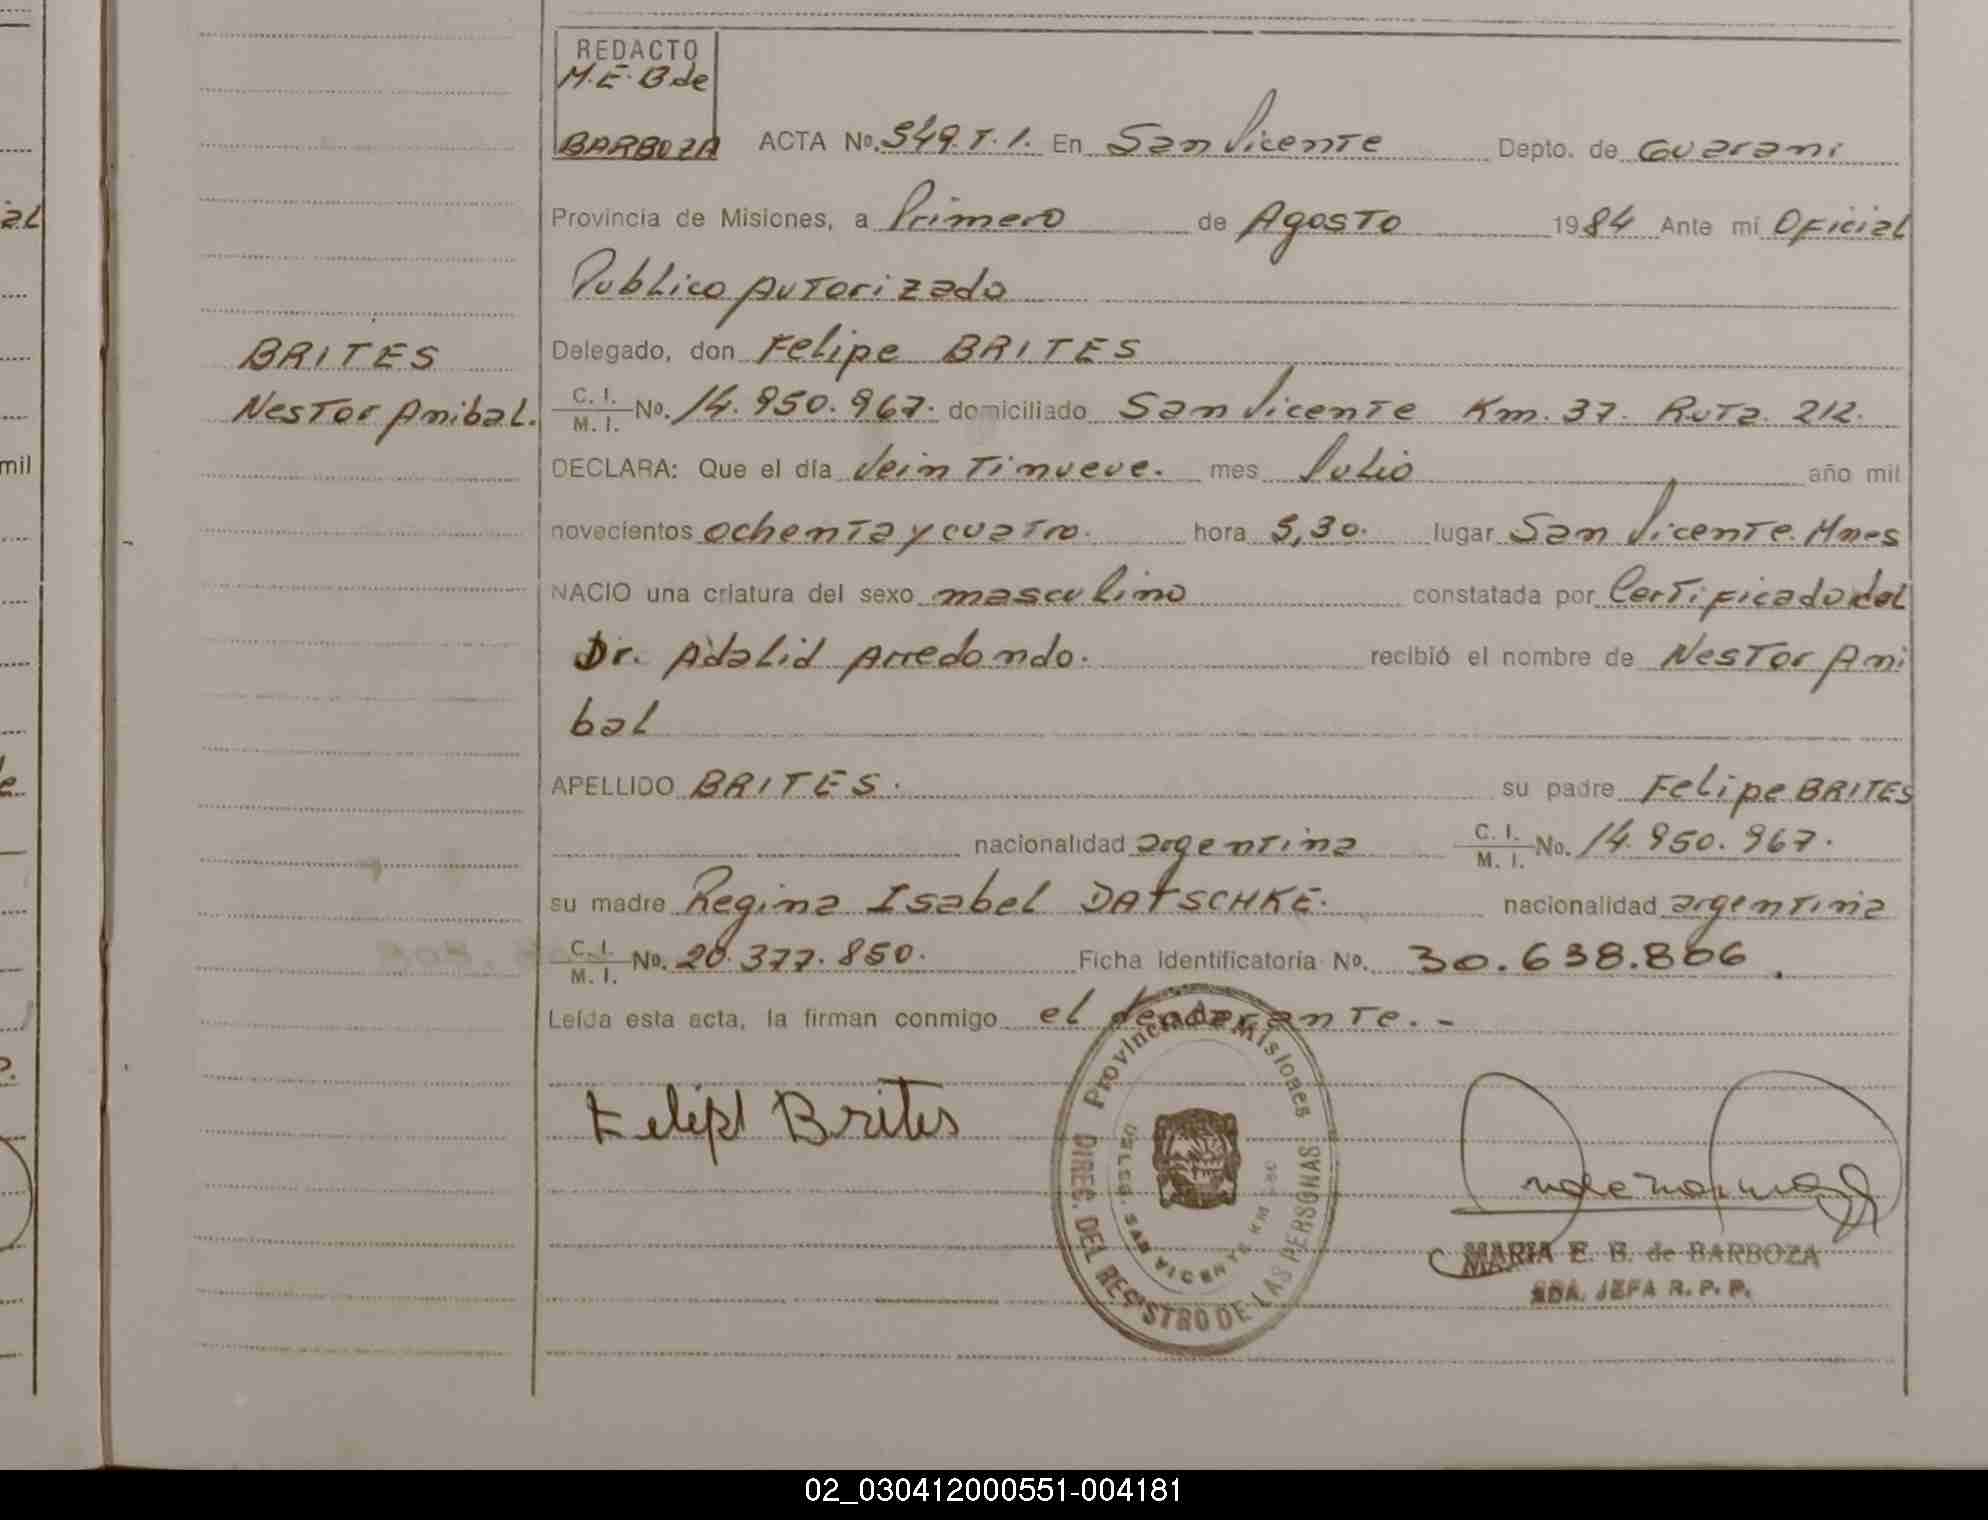 REDACTO
M.E.B de
BARBOZA
ACTA No. 549.T.1. En San Vicente Depto. de Guarani
Provincia de Misiones, a Primero de Agosto 1984 Ante mí Oficial
Publico Autorizado
BRITES
Nestor Anibal.
Delegado, don Felipe BRITES
C. I. / M. I. No. 14.950.967. domiciliado San Vicente Km. 37. Ruta. 212.
DECLARA: Que el día Veintinueve. mes Julio año mil
novecientos ochenta y cuatro. hora 5,30. lugar San Vicente. Mnes
NACIO una criatura del sexo masculino constatada por Certificado del
Dr. Adalid Arredondo. recibió el nombre de Nestor Ani
bal
APELLIDO BRITES. su padre Felipe BRITES
nacionalidad argentina C. I. / M. I. No. 14.950.967.
su madre Regina Isabel DATSCHKE. nacionalidad argentina
C. I. / M. I. No. 20.377.850. Ficha Identificatoria No. 30.638.806.
Leída esta acta, la firman conmigo el declarante.-
Felipe Brites
Provincia de Misiones
DIREC. DEL REGISTRO DE LAS PERSONAS
DELEG. SAN VICENTE KM
MARIA E. B. de BARBOZA
2DA. JEFA R. P. P.
al
mil
02_030412000551-004181